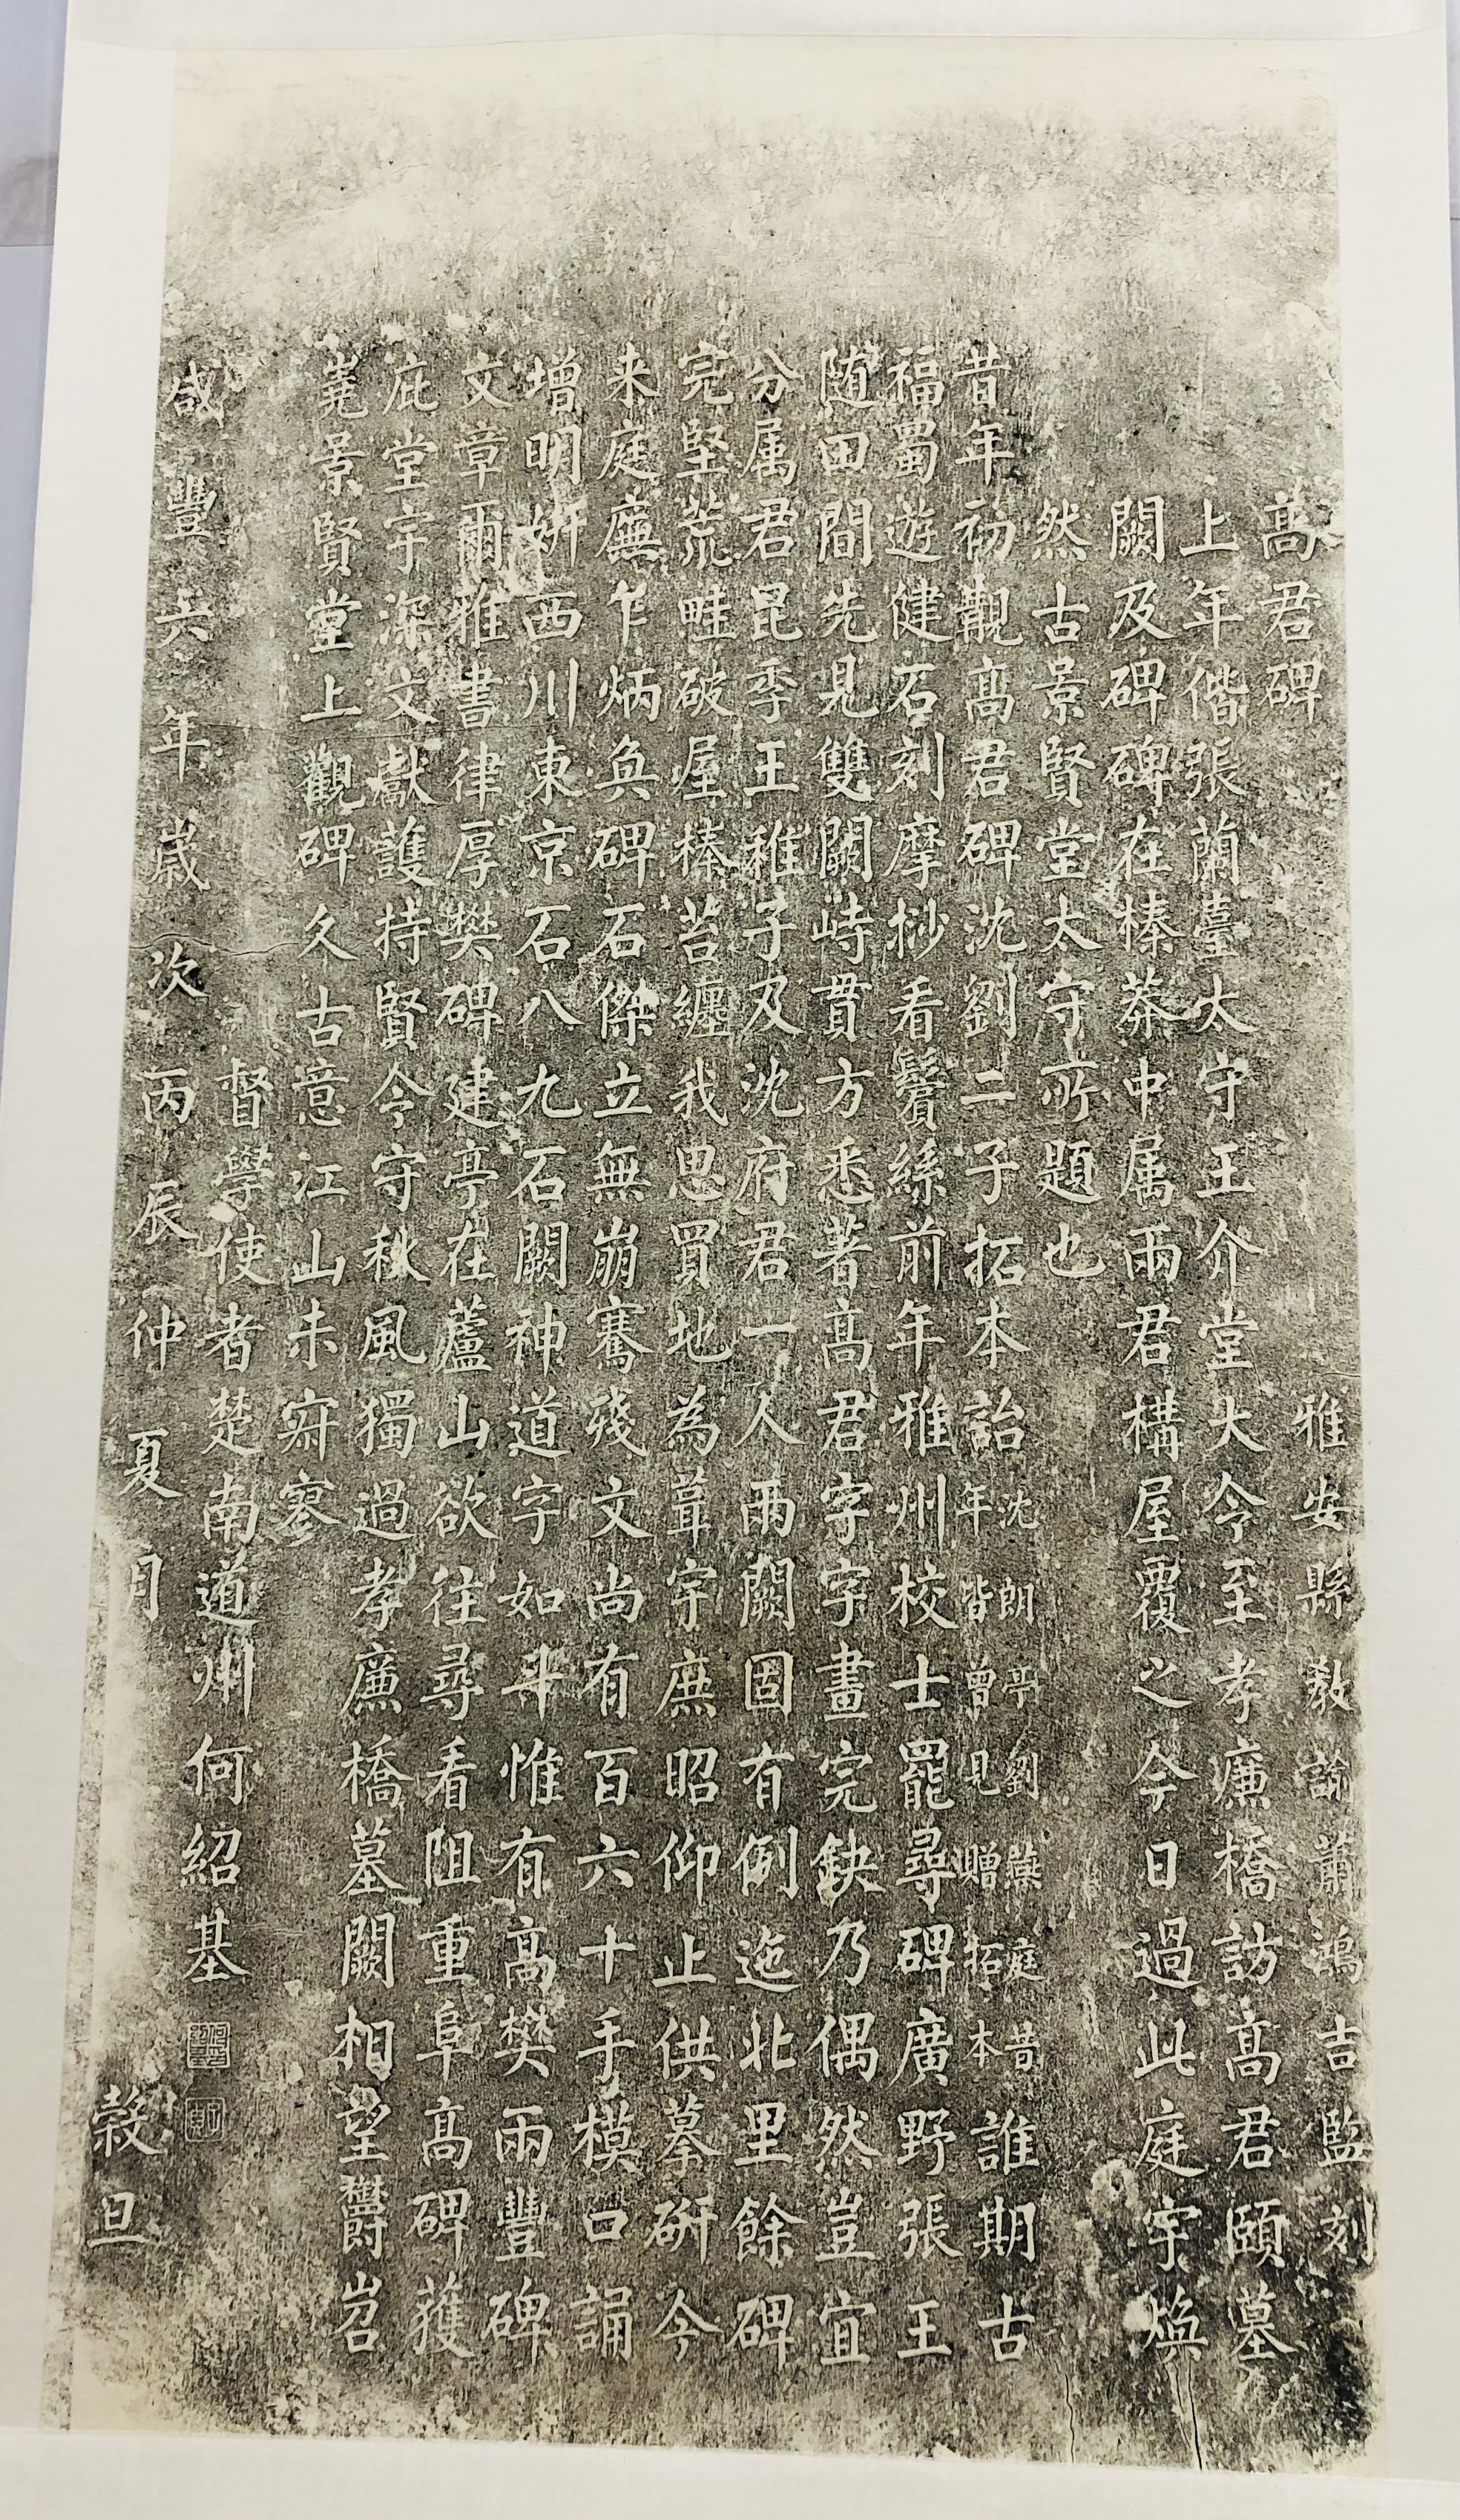 雅安縣教諭蕭鴻吉監刻
高君碑
上年偕張蘭臺太守王介堂大令至孝廉橋訪高君頤墓
闕及碑碑在榛莽中属兩君構屋覆之今日過此庭宇煥
然古景賢堂太守所題也
昔年初覯高君碑沈劉二子拓本詒沈朗亭劉燕庭昔年皆曾見贈拓本誰期古
福蜀遊健石刻摩桫看鬢絲前年雅州校士罷尋碑廣野張王
随田間先見雙闕峙貫方悉著高君字字畫完缺乃偶然豈宜
分属君昆季王稚子及沈府君一人兩闕固有例迤北里餘碑
完堅荒畦破屋榛苔纏我思買地為葺宇庶昭仰止供摹研今
来庭廡乍炳奐碑石傑立無崩騫殘文尚有百六十手模口誦
增明妍西川東京石八九石闕神道字如斗惟有高樊兩豐碑
文章爾雅書律厚樊碑建亭在蘆山欲往尋看阻重阜高碑獲
庇堂宇深文獻護持賢今守秋風獨過孝廉橋墓闕相望鬱岧
嶤景賢堂上觀碑久古意江山未寂寥
督學使者楚南道州何紹基
咸豐六年歲次丙辰仲夏月穀旦